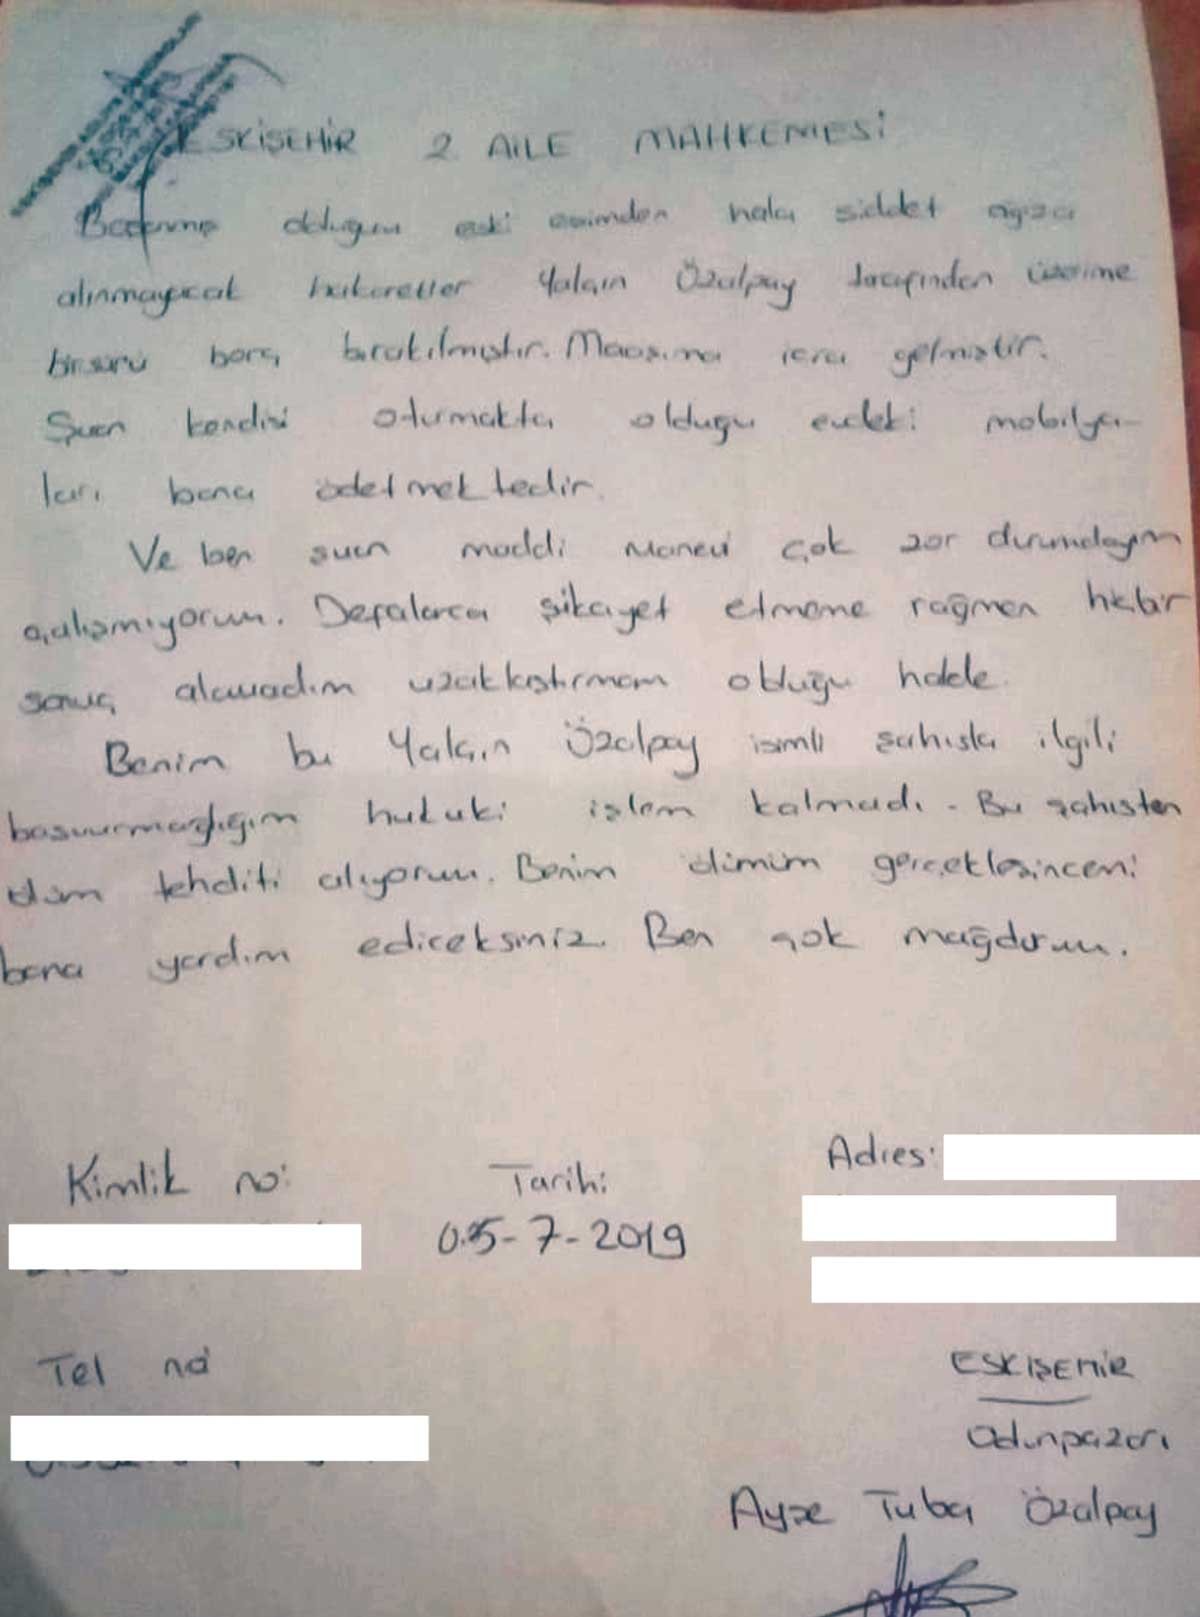 ESKİŞEHİR 2 AİLE MAHKEMESİ
Boşanmış olduğum eski eşimden hala şiddet ağıza
alınmayıcak hakaretler Yalçın Özalpay tarafından üzerime
birsürü borç bırakılmıştır. Maaşıma icra gelmiştir.
Şuan kendisi oturmakta olduğu evdeki mobilya-
ları bana ödetmektedir.
Ve ben şuan maddi manevi çok zor durumdayım
çalışmıyorum. Defalarca şikayet etmeme rağmen hiçbir
sonuç alamadım uzaklaştırmam olduğu halde.
Benim bu Yalçın Özalpay isimli şahısla ilgili
başvurmadığım hukuki işlem kalmadı. Bu şahıstan
ölüm tehditi alıyorum. Benim ölümüm gerçekleşincemi
bana yardım ediceksiniz. Ben çok mağdurum.
Kimlik no: Tarihi Adres:
05-7-2019
Tel no
ESKİŞEHİR
Odunpazarı
Ayşe Tuba Özalpay